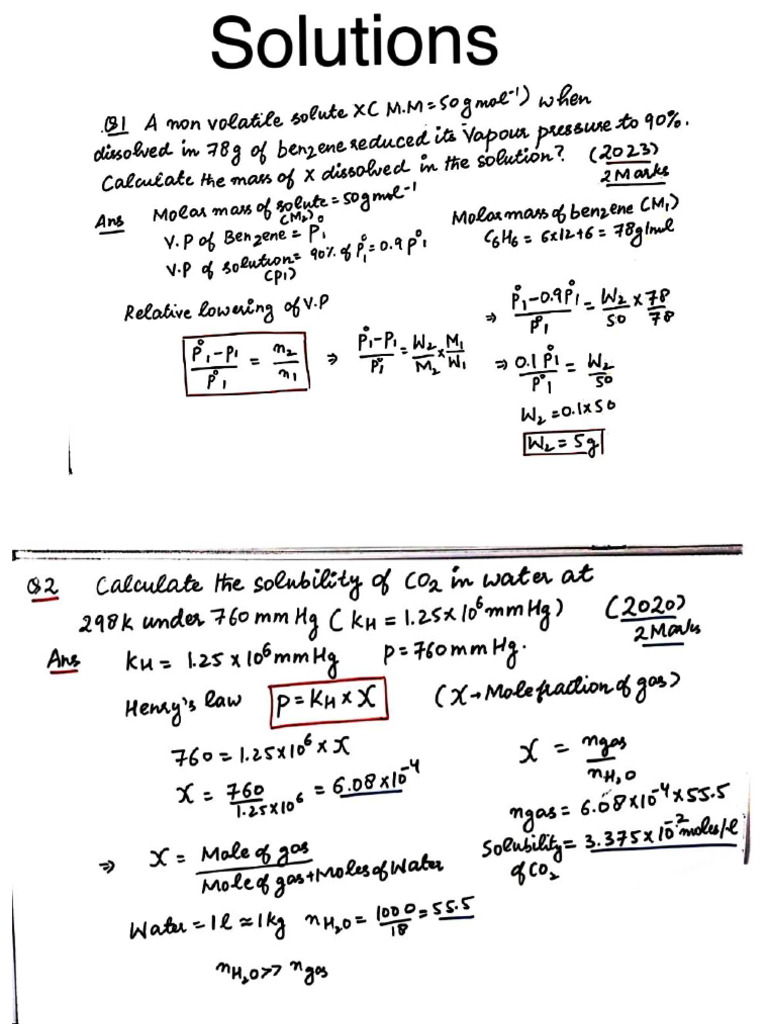 Solutions
Q1 A non volatile solute X ( M.M = 50 g mol⁻¹) when
dissolved in 78g of benzene reduced its Vapour pressure to 90%.
Calculate the mass of X dissolved in the solution? (2023)
2 Marks
Ans Molar mass of solute = 50 g mol⁻¹
(M₂)
V.P of Benzene = P₁°
V.P of solution = 90% of P₁° = 0.9 P₁°
(P₁)
Molar mass of benzene (M₁)
C₆H₆ = 6×12+6 = 78g/mol
Relative lowering of V.P
P₁°-P₁/P₁° = n₂/n₁
⇒ P₁°-P₁/P₁° = W₂/M₂ × M₁/W₁
⇒ P₁°-0.9P₁°/P₁° = W₂/50 × 78/78
⇒ 0.1 P₁°/P₁° = W₂/50
W₂ = 0.1×50
W₂ = 5g
Q2 Calculate the solubility of CO₂ in water at
298k under 760 mm Hg ( KH = 1.25×10⁶ mm Hg) (2020)
2 Marks
Ans KH = 1.25 × 10⁶ mm Hg P = 760 mm Hg.
Henry's law P = KH × X (X → Mole fraction of gas)
760 = 1.25×10⁶ × X
X = 760/1.25×10⁶ = 6.08×10⁻⁴
⇒ X = Mole of gas/Mole of gas + Moles of Water
Water = 1l ≈ 1kg nH₂O = 1000/18 = 55.5
nH₂O >> ngas
X = ngas/nH₂O
ngas = 6.08×10⁻⁴ × 55.5
Solubility = 3.375×10⁻² moles/l
of CO₂